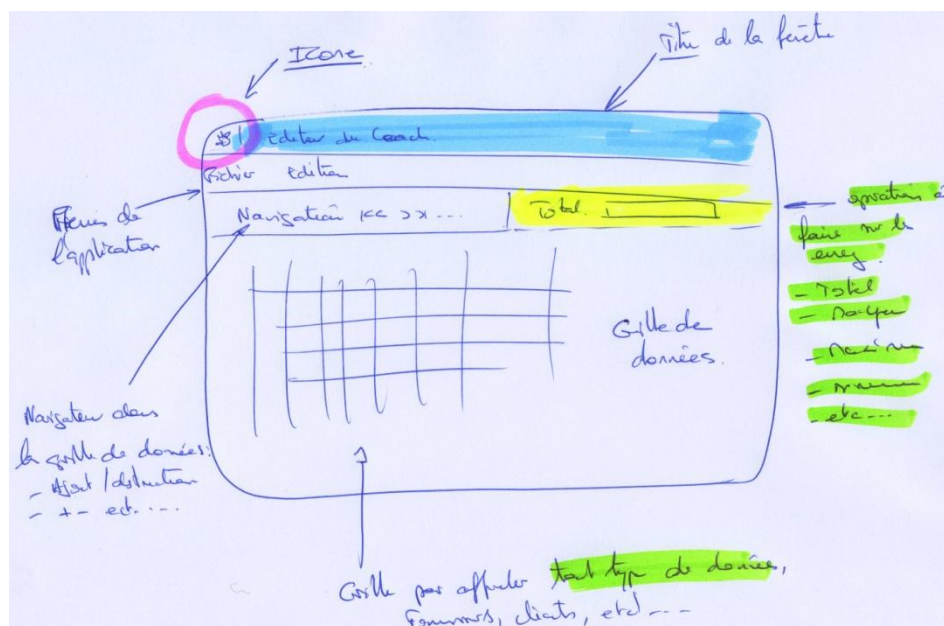 Icone
Titre de la fenêtre
Editeur du Coach.
Fichier Edition
Menus de
l'application
Navigation << >> ...
Total.
opérations à
faire sur les
enreg.
- Total
- Moyen
- Maximum
- Minimum
- etc...
Grille de
données.
Navigateur dans
la grille de données:
- Ajout / destruction
- + - ect. ...
Grille pour afficher tout type de données,
Fournisseurs, clients, etc ---